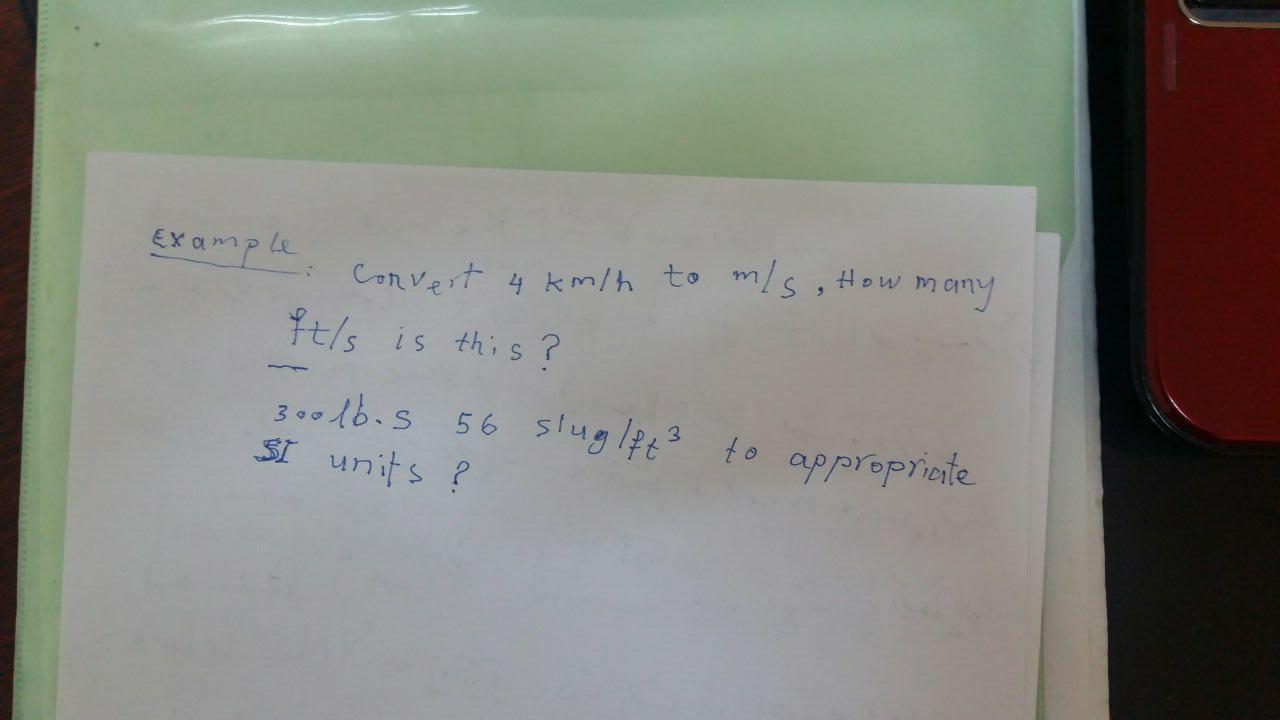 Example: Convert 4 km/h to m/s, How many
ft/s is this?
300 lb.s 56 slug/ft³ to appropriate
SI units?